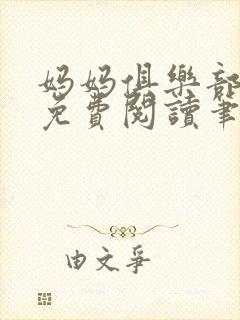 妈妈俱樂部
免費閱讀筆
由文爭